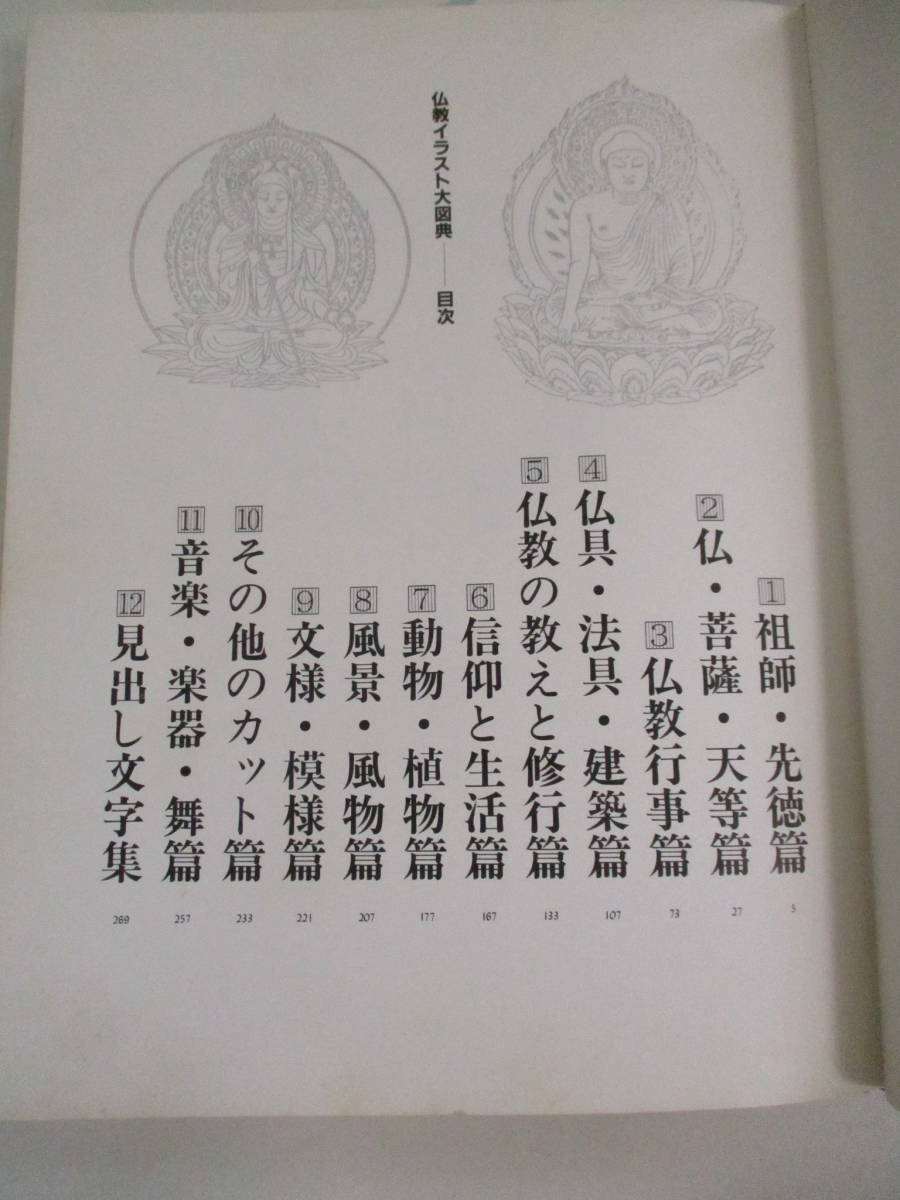 仏教イラスト大図典──目次
1 祖師・先徳篇 5
2 仏・菩薩・天等篇 27
3 仏教行事篇 73
4 仏具・法具・建築篇 107
5 仏教の教えと修行篇 133
6 信仰と生活篇 167
7 動物・植物篇 177
8 風景・風物篇 207
9 文様・模様篇 221
10 その他のカット篇 233
11 音楽・楽器・舞篇 257
12 見出し文字集 269